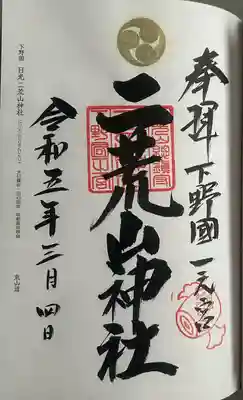 奉拝 下野國一之宮
二荒山神社
令和五年三月四日
下野国 日光二荒山神社
東山道